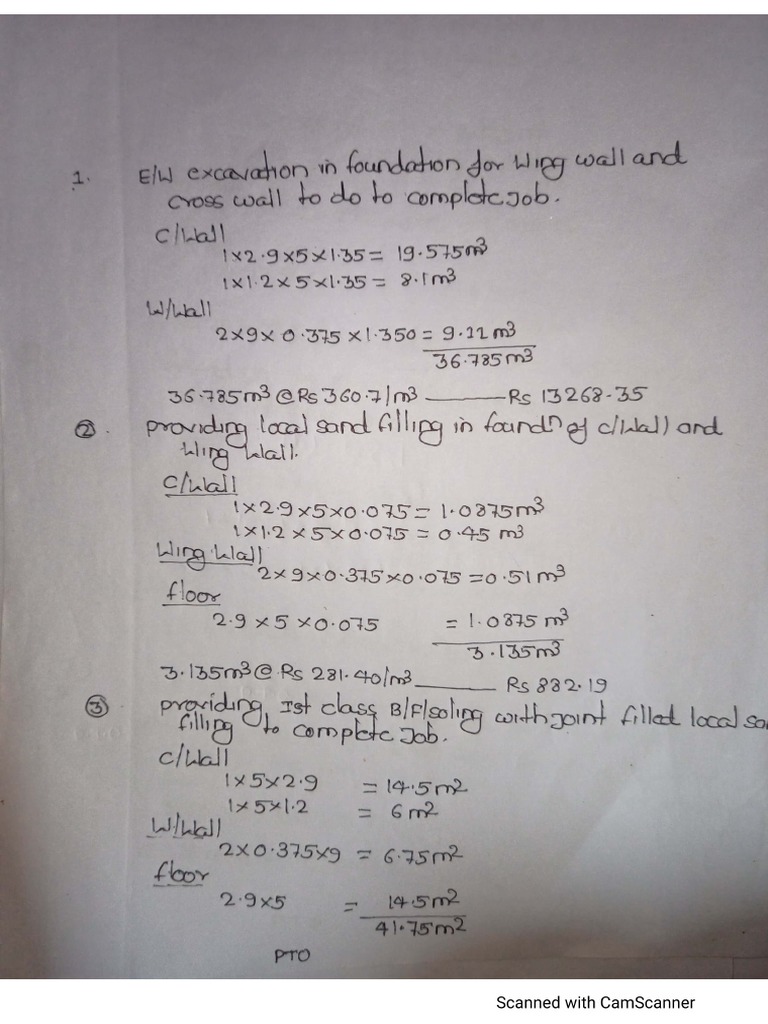 1. E/W excavation in foundation for Wing wall and
cross wall to do to complete Job.
C/Wall
1×2.9×5×1.35 = 19.575m³
1×1.2×5×1.35 = 8.1m³
W/Wall
2×9×0.375×1.350 = 9.11m³
36.785m³
36.785m³ @ Rs 360.7/m³ ——— Rs 13268-35
② providing local sand filling in foundn of c/Wall and
Wing Wall.
C/Wall
1×2.9×5×0.075 = 1.0875m³
1×1.2×5×0.075 = 0.45 m³
Wing Wall
2×9×0.375×0.075 = 0.51m³
floor
2.9×5×0.075 = 1.0875 m³
3.135m³
3.135m³ @ Rs 281.40/m³ ——— Rs 882.19
③ providing Ist class B/F/soling with joint filled local
filling to complete Job.
C/Wall
1×5×2.9 = 14.5m²
1×5×1.2 = 6m²
W/Wall
2×0.375×9 = 6.75m²
floor
2.9×5 = 14.5m²
41.75m²
PTO
Scanned with CamScanner